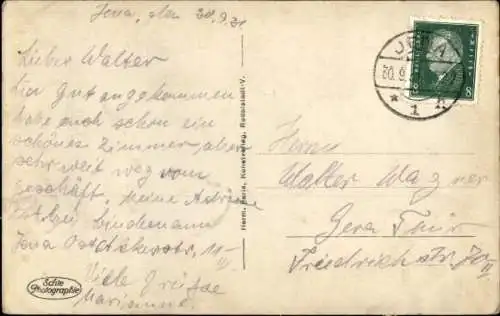 Jena, den 30.9.31
Lieber Walter
Hier gut angekommen
habe auch schon ein
schönes Zimmer, aber
sehr weit weg vom
Geschäft, meine Adresse
bei Lindemann
Jena 11
III
Viele Grüsse
Marianne.
Echte
Photographie
Herm. Paris, Kunstverlag, Rudolstadt-V.
JENA
1
8
Herrn
Walter Wagner
Gera Thür
Friedrichstr. 70
II